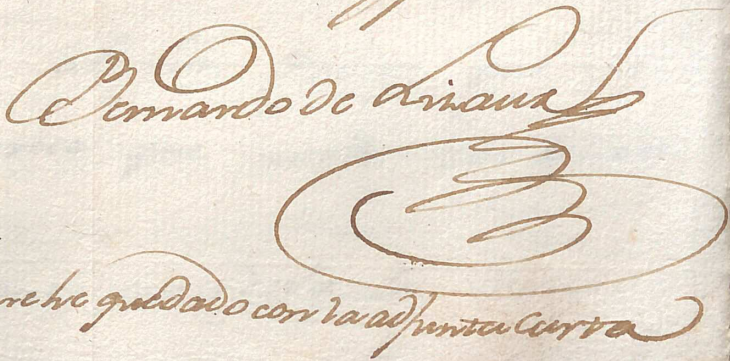 Bernardo de
he quedado con la adjunta carta